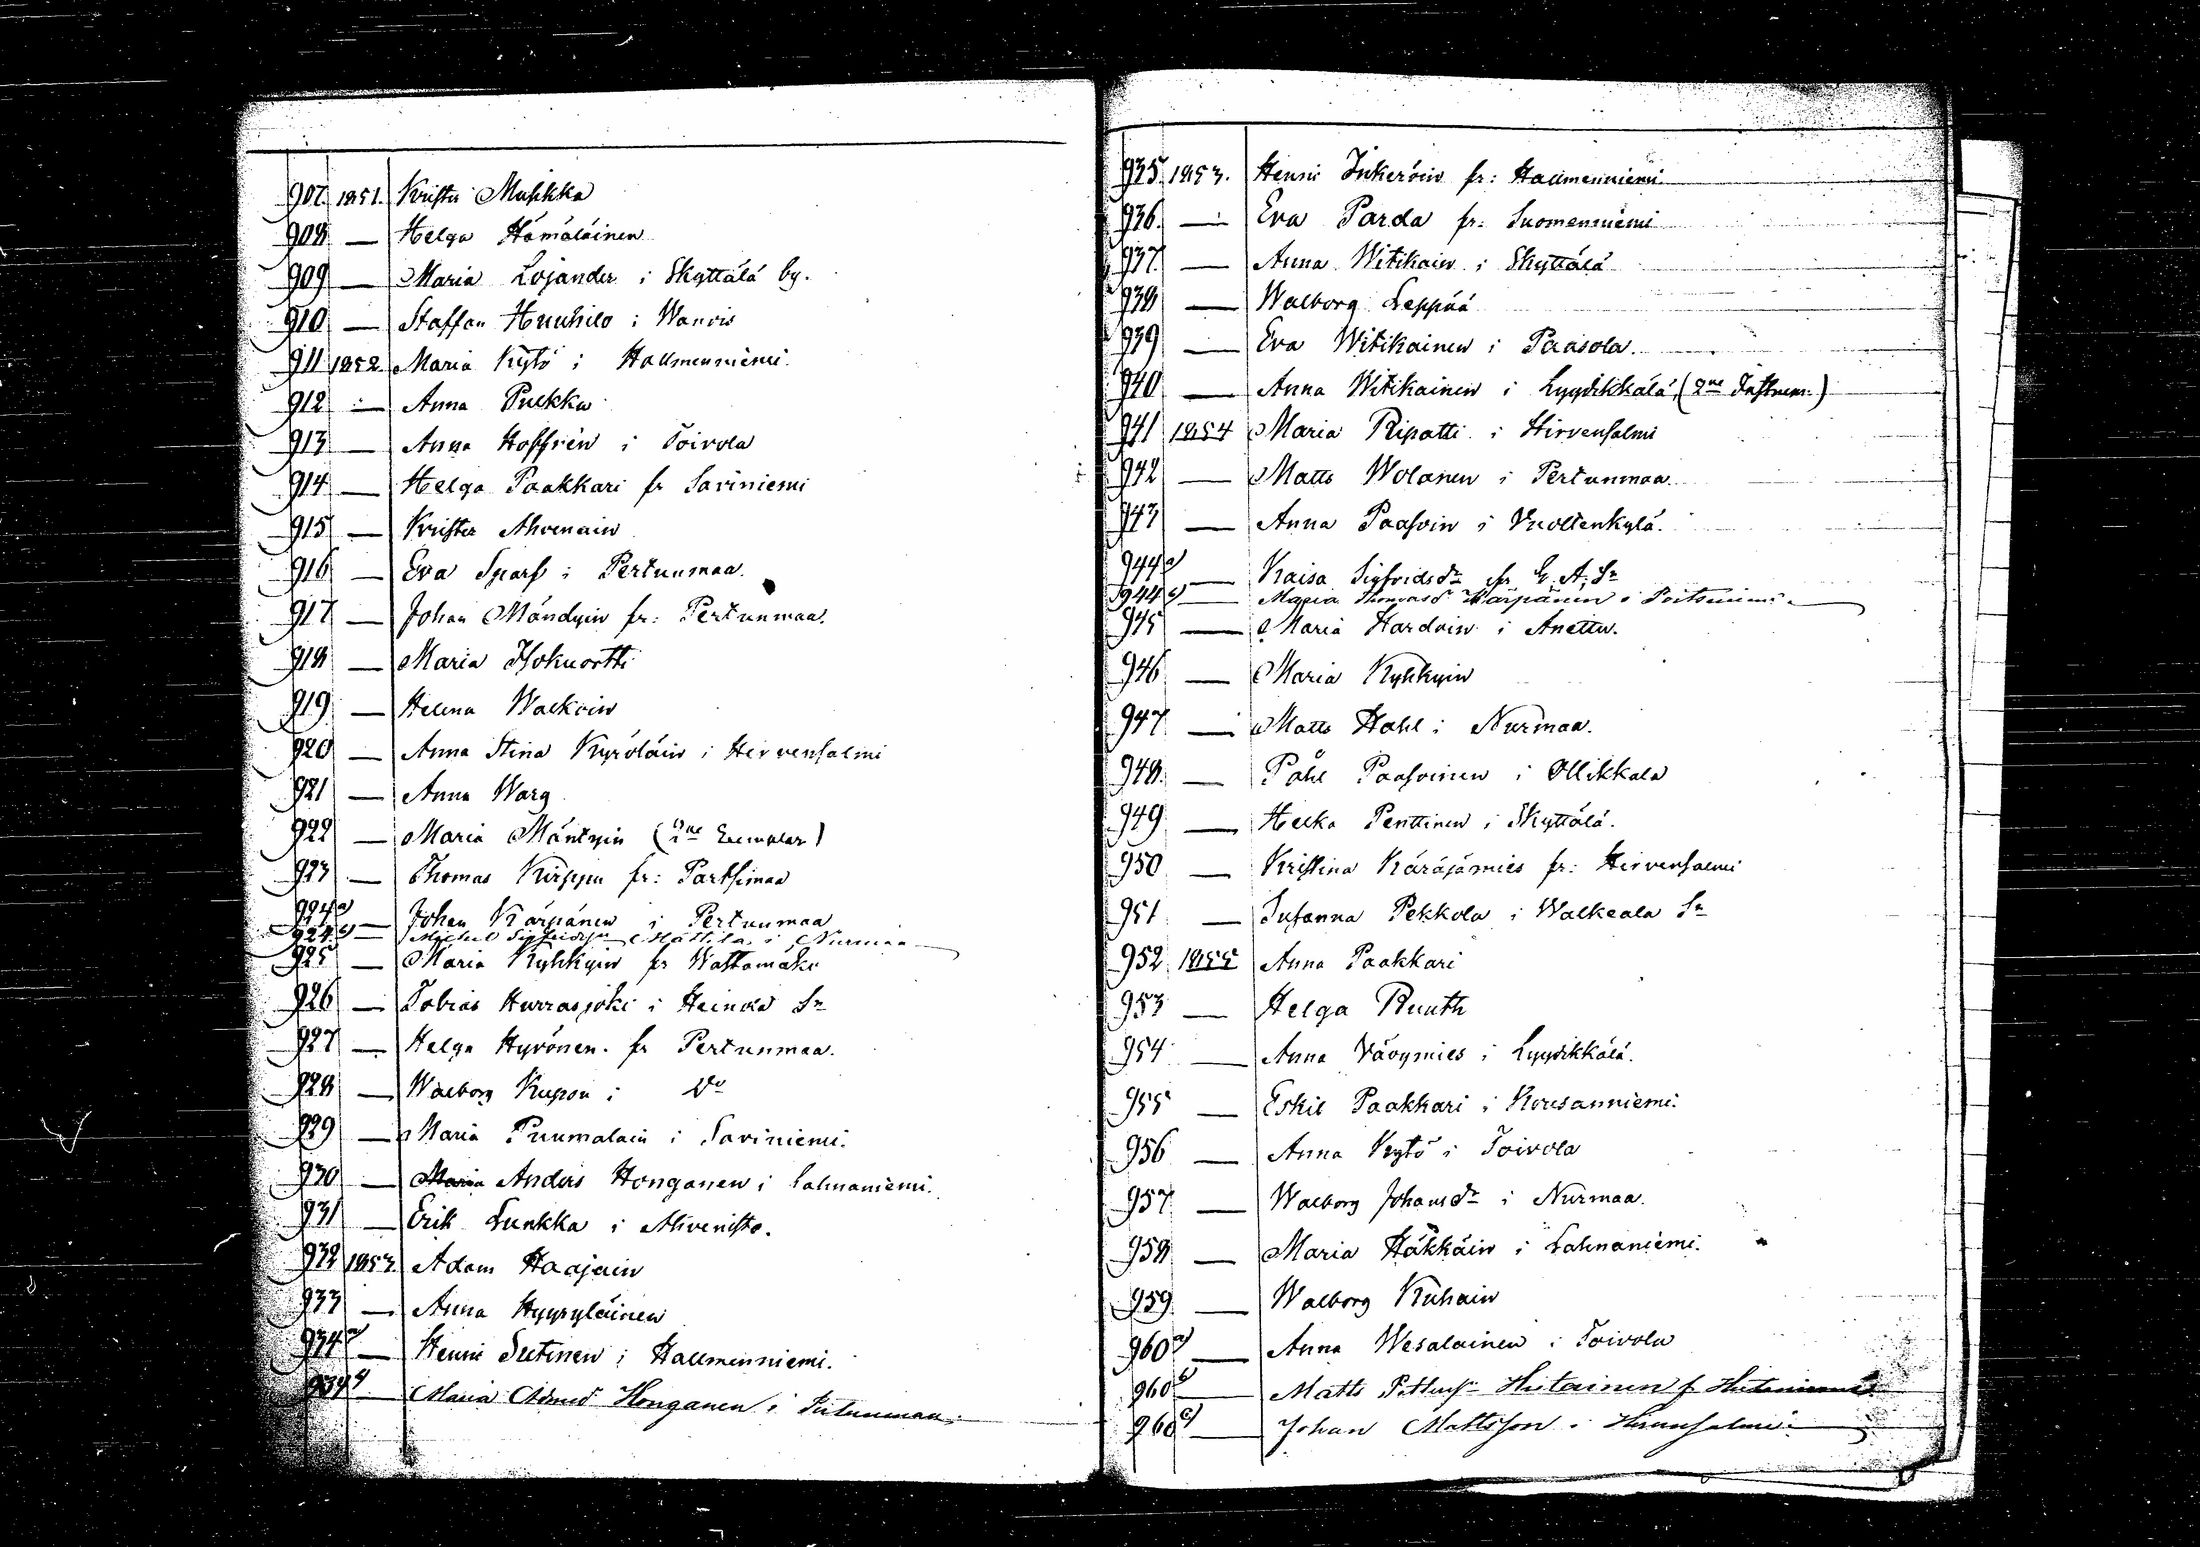 907. 1851. Krister Muhkka
908 — Helga Hämäläinen
909 — Maria Lojander i Skyttälä by.
910 — Staffan Huuhilo i Wanois
911 1852 Maria Kytö i Haumenniemi.
912 — Anna Pulkkin
913 — Anna Hoffrén i Toivola
914 — Helga Paakkari fr Saviniemi
915 — Krister Ahvenain
916 — Eva Sparf i Pertunmaa.
917 — Johan Mändyin fr: Pertunmaa.
918 — Maria Isokuortti
919 — Helena Walkoin
920 — Anna Stina Kyröläin i Hirvensalmi
921 — Anna Warg
922 — Maria Mäntyin (2ne Exemplar)
923 — Thomas Kirppu fr: Partsimaa
924a) — Johan Kärpänen i Pertunmaa
924c) — Michel Sigfridsn Mattila i Nurmaa
925 — Maria Kyhkyin fr Wattamäki
926 — Tobias Hurrasjoki i Heinola Sn
927 — Helga Hyrönen. fr Pertunmaa.
928 — Walborg Kupson i Do
929 — Maria Puumalain i Saviniemi.
930 — Maria Anders Honganen i Lahnaniemi.
931 — Erik Lunkka i Ahvenisto.
932 1853 Adam Haajain
933 — Anna Hyyryläinen
934a) — Henric Sutinen i Haumenniemi.
934c) Maria Adamsd Honganen i Pertunmaa.
935. 1853. Henric Inkeröin fr: Haumenniemi
936. — Eva Parda fr: Suomenniemi
937. — Anna Witikain i Skyttälä
938 — Walborg Leppää
939 — Eva Witikainen i Paasola.
940 — Anna Witikainen i Lyydikkälä (2ne Instrum.)
941 1854 Maria Ripatti i Hirvensalmi
942 — Matts Wolanen i Pertunmaa.
943 — Anna Paasoin i Vuoltenkylä.
944a) — Kaisa Sigfridsdr fr G. A. Sn
944c) — Maria Thomasd Kärpänen i Poitsniemi
945 — Maria Hardoin i Anettu.
946 — Maria Kyhkyin
947 — Matts Hahl i Nurmaa.
948. — Påhl Paasoinen i Ollikkala
949 — Helka Penttinen i Skyttälä.
950 — Kristina Käräjämies fr: Hirvensalmi
951 — Susanna Pekkola i Walkeala Sn
952 1855 Anna Paakkari
953 — Helga Ruuth
954 — Anna Väöymies i Lyydikkälä.
955 — Eskil Paakkari i Kousanniemi.
956 — Anna Kytö i Toivola
957 — Walborg Johansdr i Nurmaa.
958 — Maria Häkkäin i Lahnaniemi.
959 — Walborg Kuhain
960a) — Anna Wesalainen i Toivola
960b) — Matts Pettersn Hiitainen fr
960c) — Johan Mattsson i Hirvensalmi